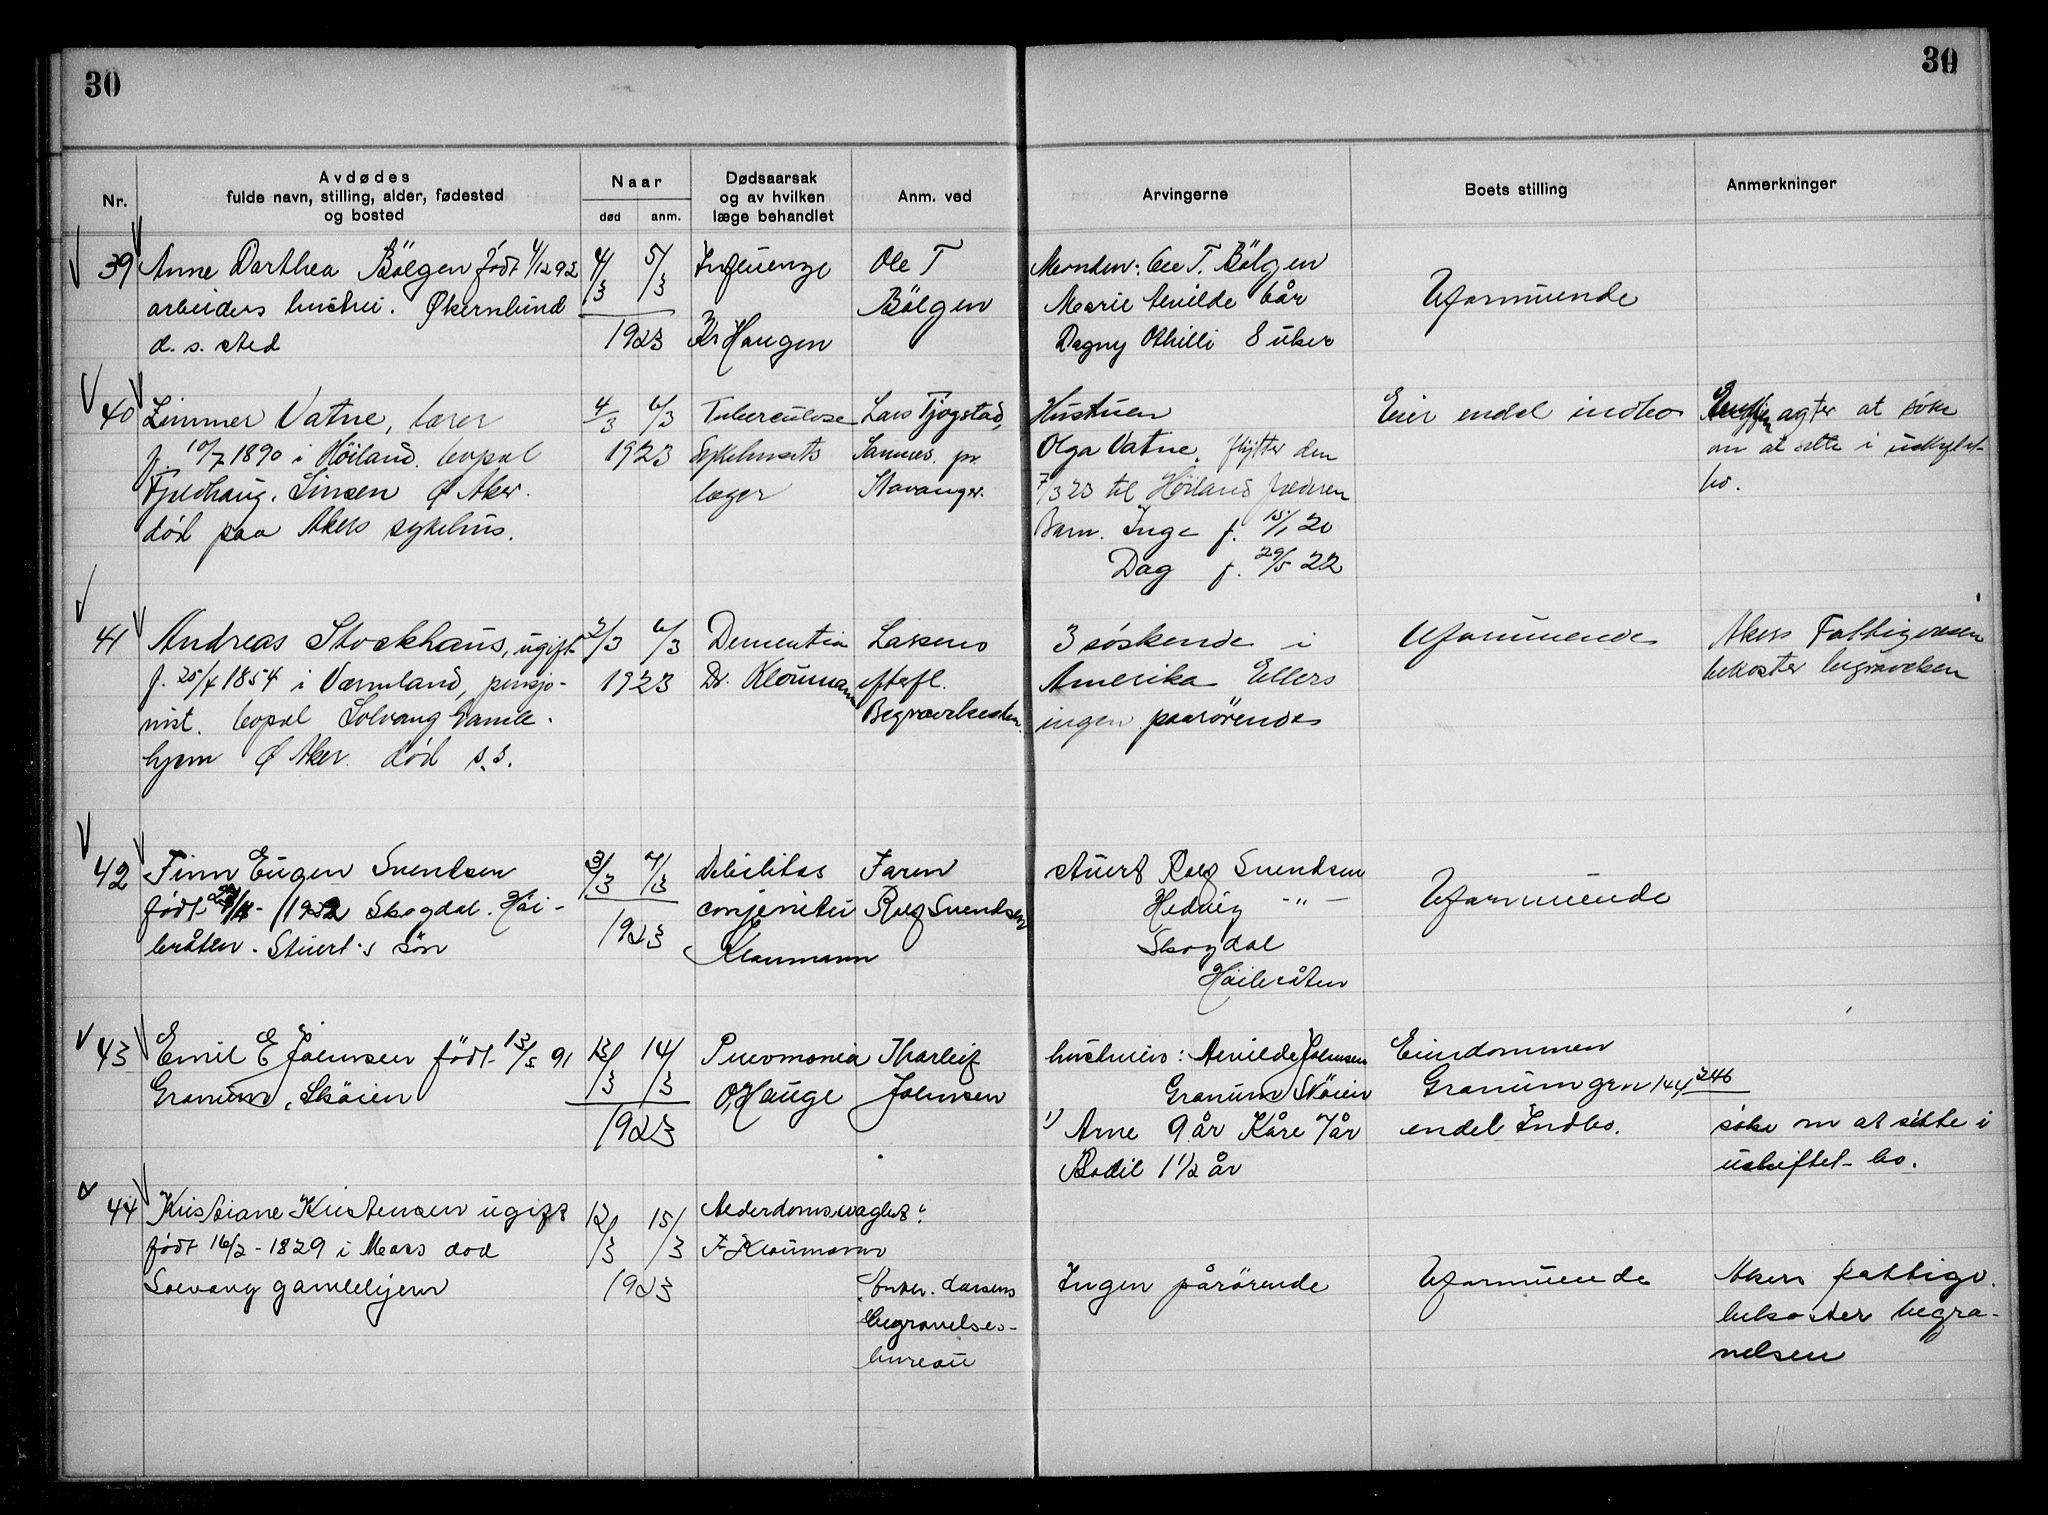 30
30
Nr.
Avdødes
fulde navn, stilling, alder, fødested
og bosted
Naar
død
anm.
Dødsaarsak
og av hvilken
læge behandlet
Anm. ved
Arvingerne
Boets stilling
Anmerkninger
39
Anne Dorthea Bölgen født 4/12 92
arbeiders hustru. Økernlund
d. s. sted
4/3 5/3
1923
Influenze
Kr Haugen
Ole T
Bölgen
Manden: Ole T. Bölgen
Marie Alvilde 6 år
Dagny Othilli 8 uker
Uformuende
40
Zimmer Vatne, lærer
f. 10/7 1890 i Høiland. bopæl
Fjeldhaug. Sinsen Ø Aker.
død paa Akers sykehus.
4/3 6/3
1923
Tuberculose
Sykehusets
læger
Lars Tjogstad,
Sannes. pr.
Stavanger.
Hustruen
Olga Vatne. flytter den
7/3 23 til Høiland Jæderen
Barn. Inge f. 15/1 20
Dag f. 29/5 22
Eier endel indbo
Enken agter at søke
om at sitte i uskiftet
bo.
41
Andreas Stockhaus, ugift
f. 25/4 1854 i Værmland, pensjo-
nist. bopæl Solvang Gamle-
hjem Ø Aker. død s. s.
2/3 6/3
1923
Dementia
Dr. Kloumann
Larsens
efterfl.
3 søskende i
Amerika Ellers
ingen paarörende
Uformuende
Akers Fattigvæsen
bekoster begravelsen
42
Finn Eugen Svendsen
født 1922 Skogdal. Höi-
bråten. Stuert's sön
3/3 7/3
1923
Debilitas
conjenita
Kloumann
Faren
Rolf Svendsen
Stuert Rolf Svendsen
Hedvig -"-
Skogdal
Höibråten
Uformuende
43
Emil E Johnsen født 13/5 91
Granum, Sköien
12/3 14/3
1923
Pneomonia
O, Hauge
Thorleif
Johnsen
hustruen: Alvilde Johnsen
Granum Sköien
1) Arne 9 år Kåre 7 år
Bodil 1 1/2 år
Eiendommen
Granum grn 144 246
endel Indbo.
søke om at sitte i
uskiftet bo.
44
Kristiane Kristensen ugift
født 16/2 - 1829 i Moss død
Solvang gamlehjem
12/3 15/3
1923
Alderdomssvaghet
F Kloumann
Larsens
begravelses-
bureau
Ingen pårörende
Uformuende
Akers fattigv.
bekoster begra-
velsen